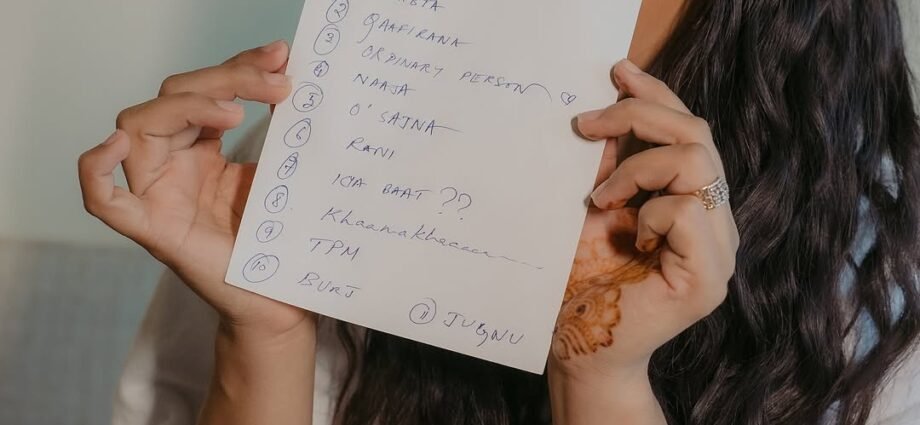 2 QAAFIRANA
3 ORDINARY PERSON ♡
4 NAAJA
5 O' SAJNA
6 RANI
7 KYA BAAT ??
8 Khaamakhaaaa
9 TPM
10 BURJ
11 JUGNU